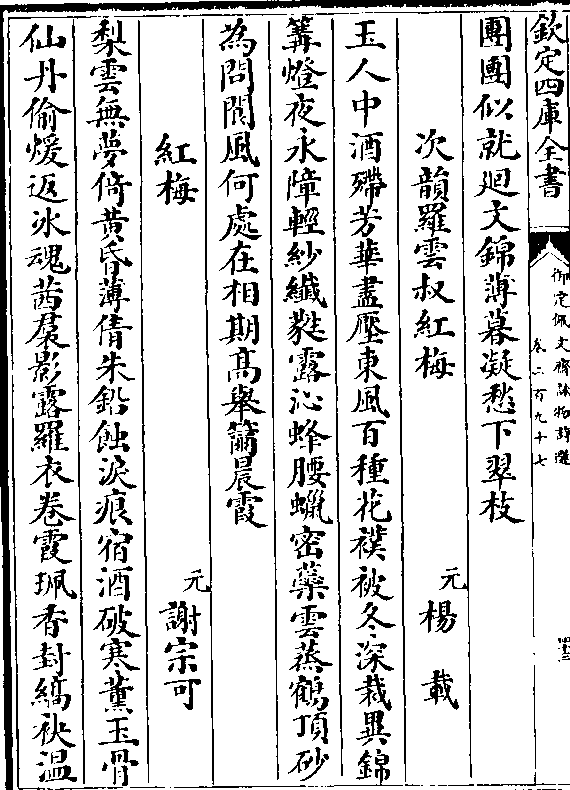 欽定四庫全書
御定佩文齋詠物詩選
卷二百九十七
團團似就廻文錦薄暮凝愁下翠枝
次韻羅雲叔紅梅 元楊載
玉人中酒殢芳華盡壓東風百種花襆被冬深裁異錦
篝燈夜永障輕紗纎蕤露沁蜂腰蠟密蘂雲蒸鶴頂砂
為問閬風何處在相期髙舉籋晨霞
紅梅 元謝宗可
梨雲無夢倚黄昏薄倩朱鉛蝕淚痕宿酒破寒薰玉骨
仙丹偷煖返冰魂茜裠影露羅衣卷霞珮香封縞袂温